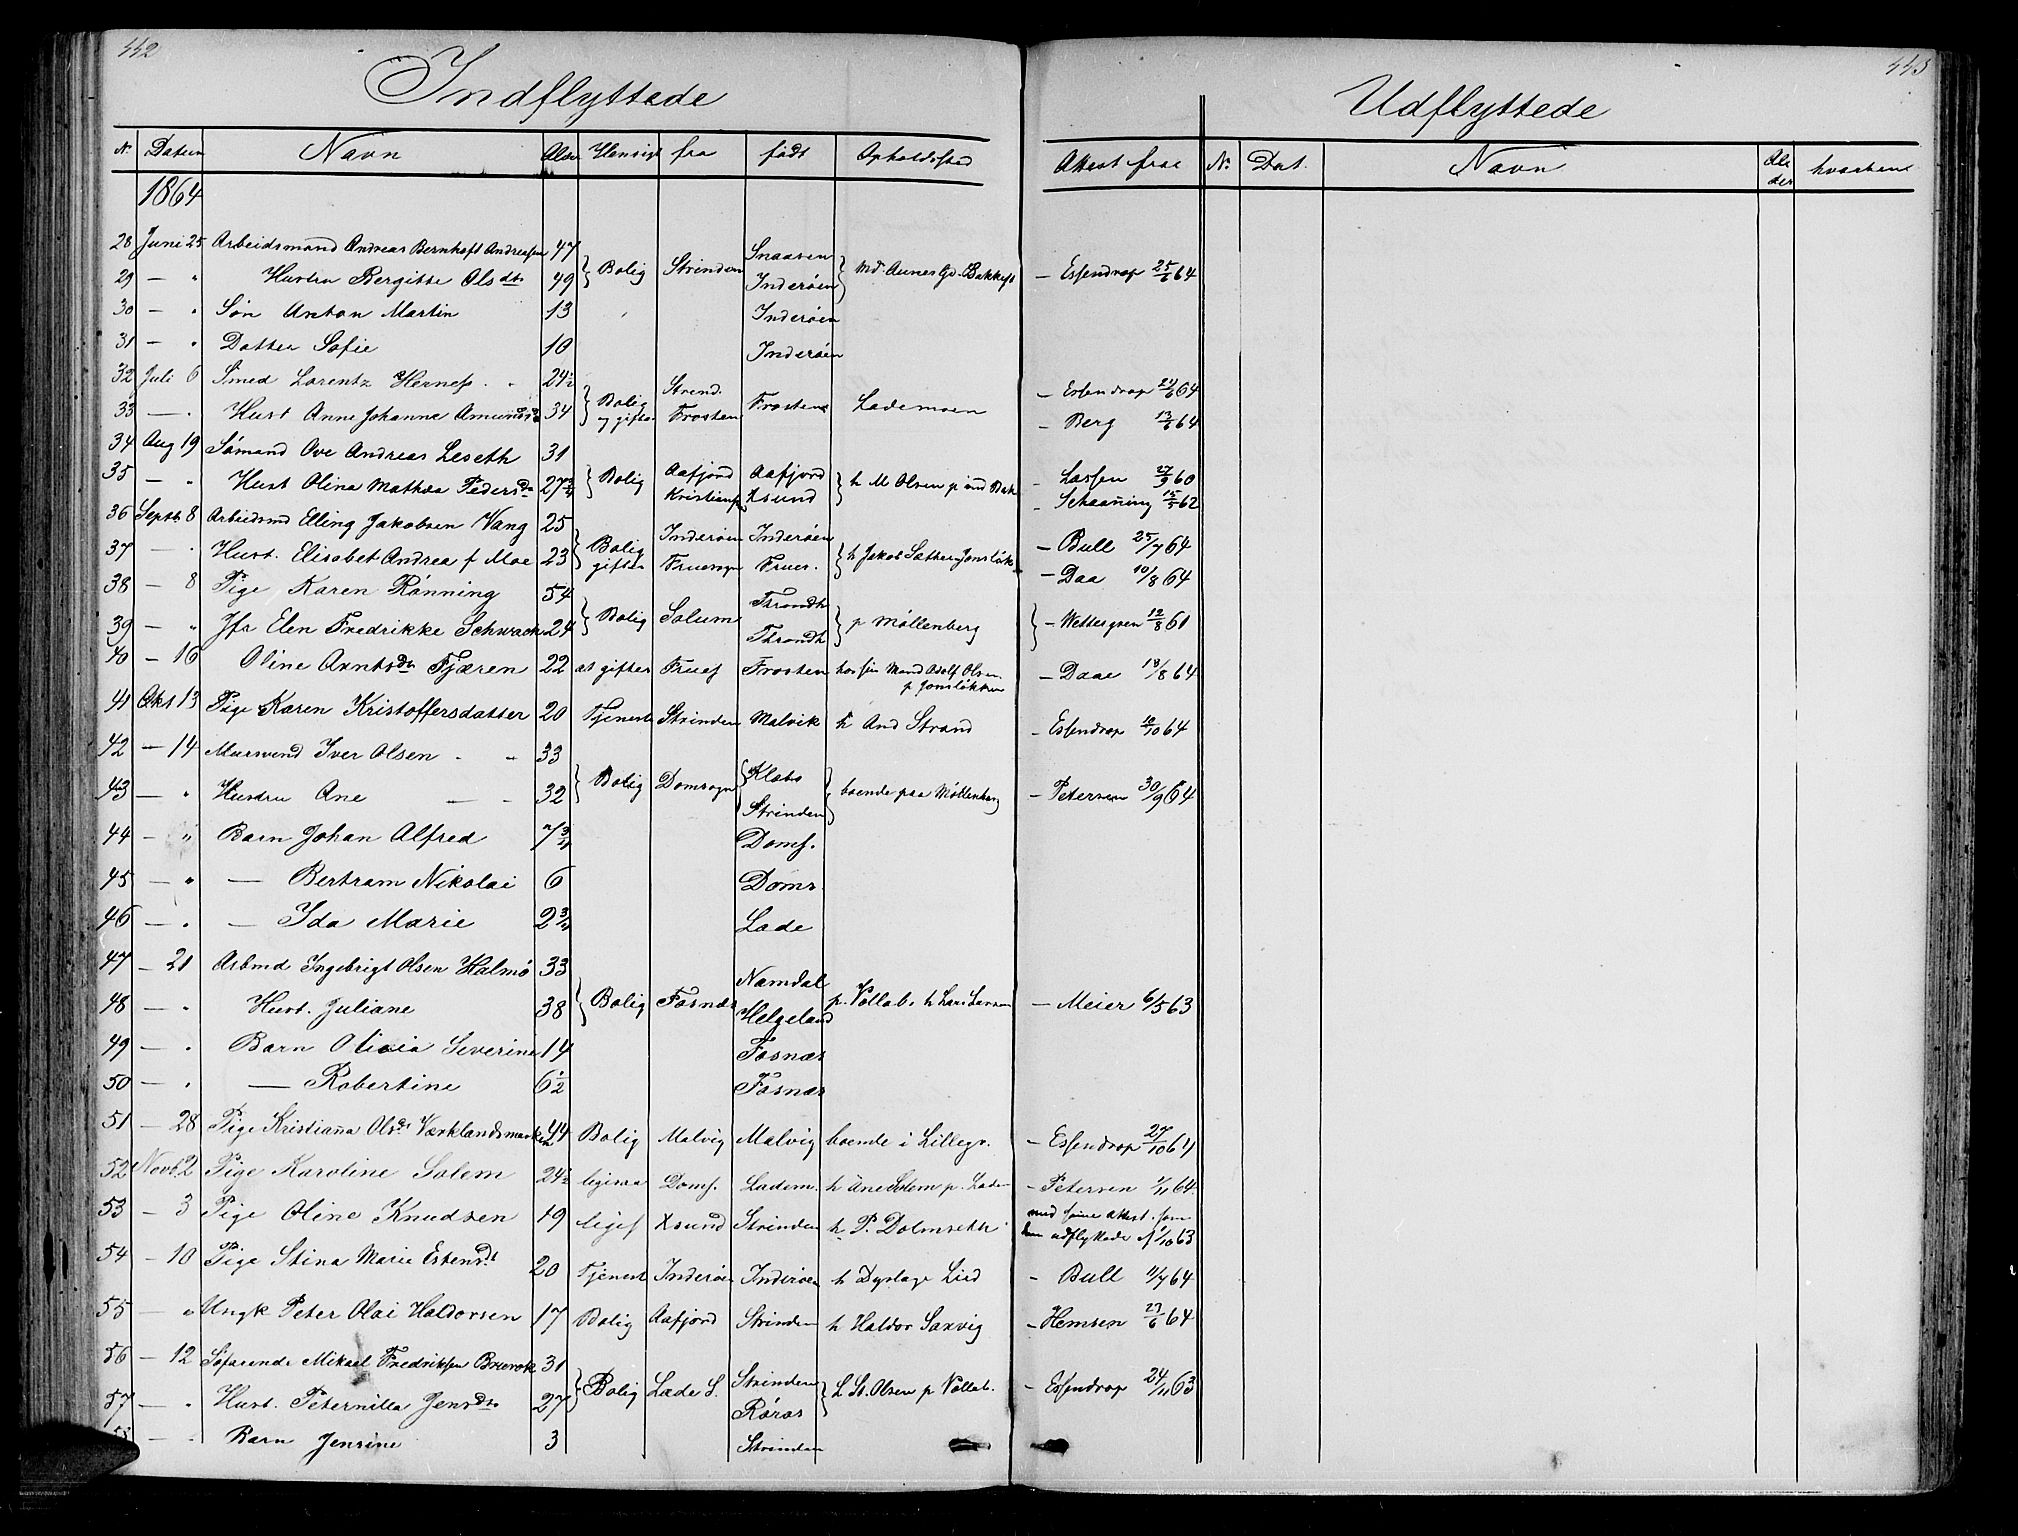 442
443
Indflyttede
Udflyttede
N. Datum Navn Alder Hensigt fra født Opholdssted Attest fra N. Dat. Navn Alder hvorhen
1864
28 Juni 25 Arbeidsmand Andreas Bernhoft Andreassen 47 Bolig Strinden Snaasen Md. Aunes Gd. Bakkeft – Essendrop 25/6 64
29 — " Hustru Bergitte Olsdtr 49 Inderøen
30 — " Søn Anton Martin 13 Inderøen
31 — " Datter Sofie 10 Inderøen
32 Juli 6 Smed Lorentz Herness 24½ Bolig og gifter Strind. – Essendrop 64
33 — " Hust Anne Johanne Amunds 34 Frosten Frosten Lademoen – Berg 13/6 64
34 Aug 19 Sømand Ove Andreas Leseth 31 Bolig Aafjord Aafjord – Lassen 27/9 60
35 — " Hust Olina Mathea Pedersdr 27¾ Kristians Xsund h M Olsen p ind Bak – Schaanning 62
36 Septb 8 Arbeidsmd Elling Jakobsen Vang 25 Bolig Inderøen Inderøen – Bull 25/7 64
37 — " Hust. Elisabet Andrea f Moe 23 gifter Fruesogn Frues. h Jakob Sæther Jonsløk – Daa 10/8 64
38 — 8 Pige Karen Rønning 54 Bolig Solum Throndh
39 — " Jfr Elen Fredrikke Schwach 24 Throndh p Møllenberg – Wettergren 12/8 61
40 — 16 Oline Arntsdr Fjæren 22 at gifter Frues Frosten hos sin Mand Adolf Olsen p Jonsløkken – Daae 18/8 64
41 Okt 13 Pige Karen Kristoffersdatter 20 Tjenest Strinden Malvik h And Strand – Essendrop 10/10 64
42 — 14 Mursvend Iver Olsen 33 Bolig Domsogn Klæbo
43 — " Hustru Ane 32 Strinden boende paa Møllenberg – Petersen 30/9 64
44 — " Barn Johan Alfred 7¾ Doms.
45 — " — Bertram Nikolai 6 Doms.
46 — " — Ida Marie 2¾ Lade
47 — 21 Arbmd Ingebrigt Olsen Halmø 33 Namdal
48 — " Hust. Juliane 38 Bolig Fosnæs Helgeland p. Vollab. h Lars Larsen – Meier 6/5 63
49 — " Barn Olicia Severine 14 Fosnæs
50 — " — Robertine 6½ Fosnæs
51 — 28 Pige Kristianna Olsdr Værklandsmarken 44 Bolig Malvig Malvig boende i Lillegr. – Essendrop 27/10 64
52 Novb. 2 Pige Karoline Solem 24½ ligesaa Doms. Ladem. h Ane Solem p. Laden – Petersen 1/11 64
53 — 3 Pige Oline Knudsen 19 liges Xsund Strinden h P. Dolmseth med samme attest som hun udflyttede 1/10 63
54 — 10 Pige Stina Marie Estensdt 20 Tjenest Inderøen Inderøen h Dyrlæge Lied – Bull 11/7 64
55 — " Ungk Peter Olai Haldorsen 17 Bolig Aafjord Strinden h Haldor Saxvig – Hemsen 27/6 64
56 — 12 Søfarende Mikael Fredriksen Brevok 31 Bolig Lade S. Strinden L St. Olsen p Vollab. – Essendrop 24/11 63
57 — " Hust. Peternilla Jensdtr 27 Røros
58 — " Barn Jensine 3 Strinden